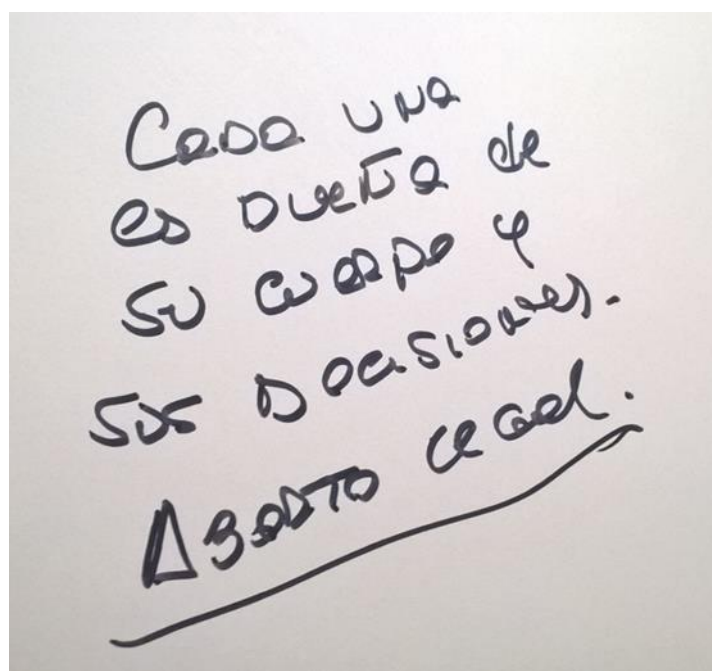 Cada una
es dueña de
su cuerpo y
sus decisiones.
Aborto legal.